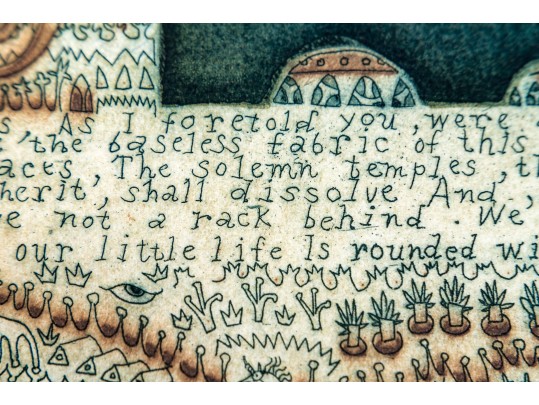 s, As I foretold you, were
s, the baseless fabric of this
aces, The solemn temples, th
herit, shall dissolve And,
e not a rack behind. We
our little life Is rounded wi